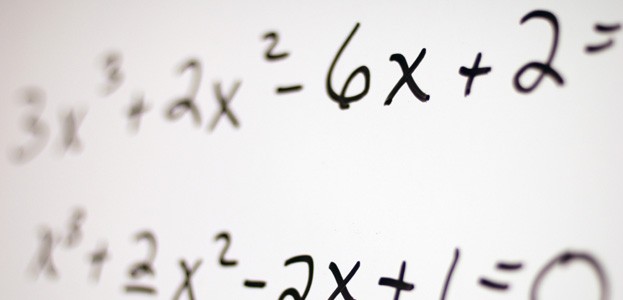 3x³ + 2x² - 6x + 2 =
x³ + 2x² - 2x + 1 = 0